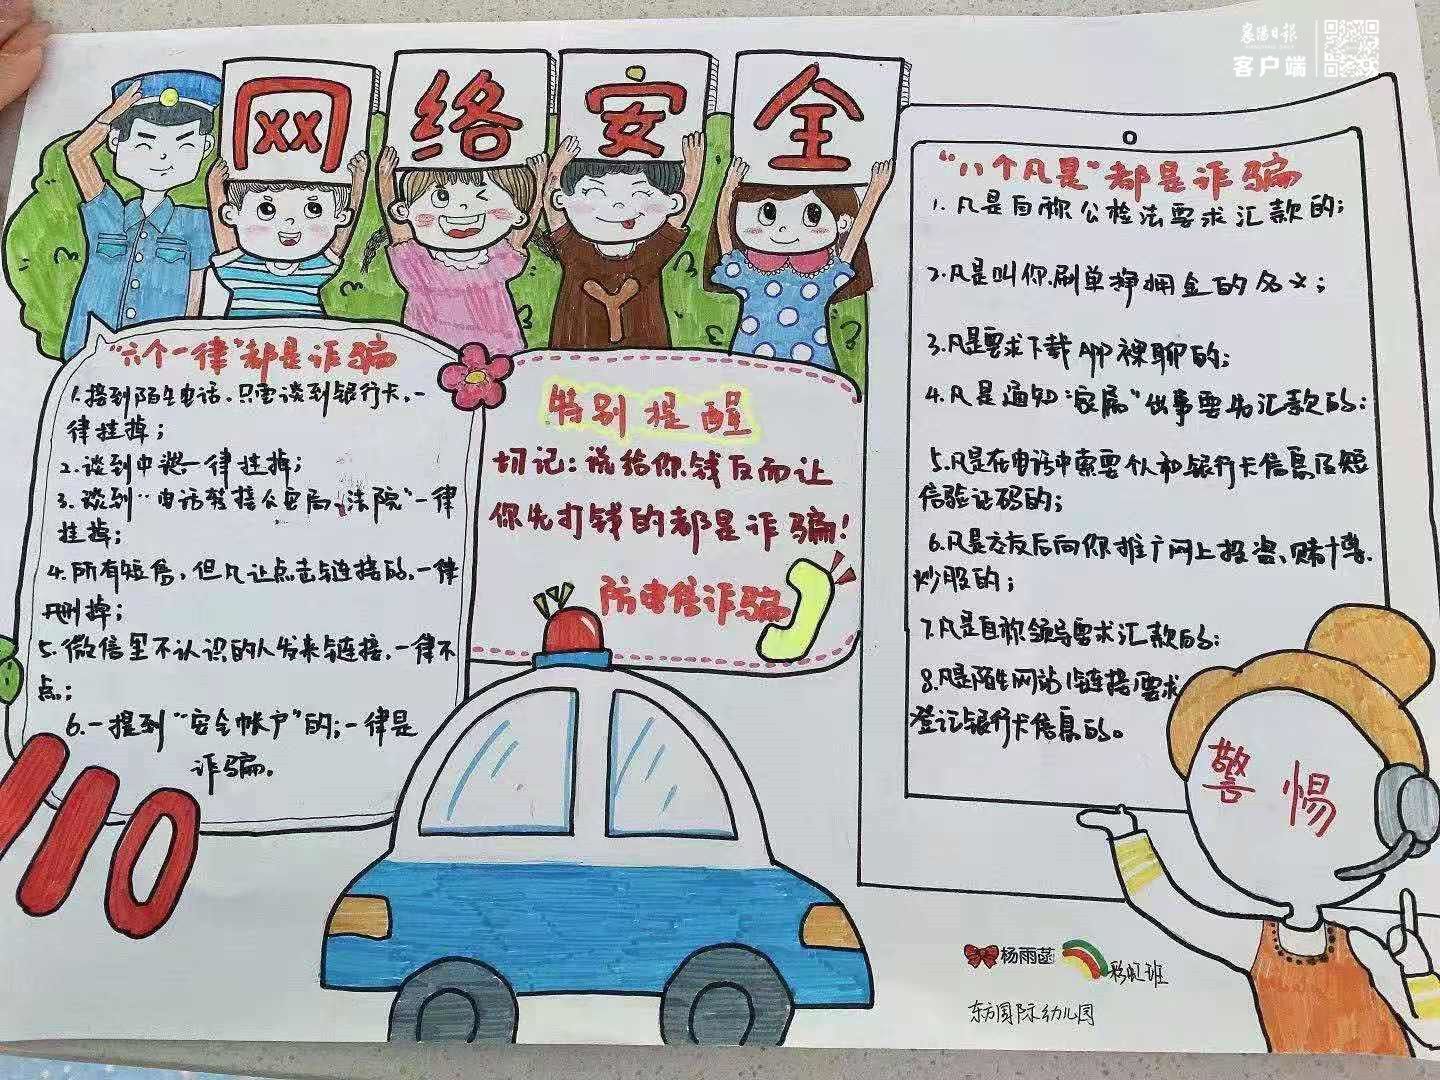 襄阳日报
客户端
网络安全
"六个一律"都是诈骗
1.接到陌生电话,只要谈到银行卡,一
律挂掉;
2.谈到中奖一律挂掉;
3.谈到"电话转接公安局、法院"一律
挂掉;
4.所有短信,但凡让点击链接的,一律
删掉;
5.微信里不认识的人发来链接,一律不
点;
6.一提到"安全帐户"的;一律是
诈骗。
110
特别提醒
切记:说给你钱反而让
你先打钱的都是诈骗!
防电信诈骗
"八个凡是"都是诈骗
1.凡是自称公检法要求汇款的;
2.凡是叫你刷单挣拥金的名义;
3.凡是要求下载APP裸聊的;
4.凡是通知"家属"出事要先汇款的;
5.凡是在电话中索要个人和银行卡信息及短
信验证码的;
6.凡是交友后向你推广网上投资、赌博、
炒股的;
7.凡是自称领导要求汇款的;
8.凡是陌生网站(链接)要求
登记银行卡信息的。
警惕
杨雨菡 彩虹班
东方国际幼儿园